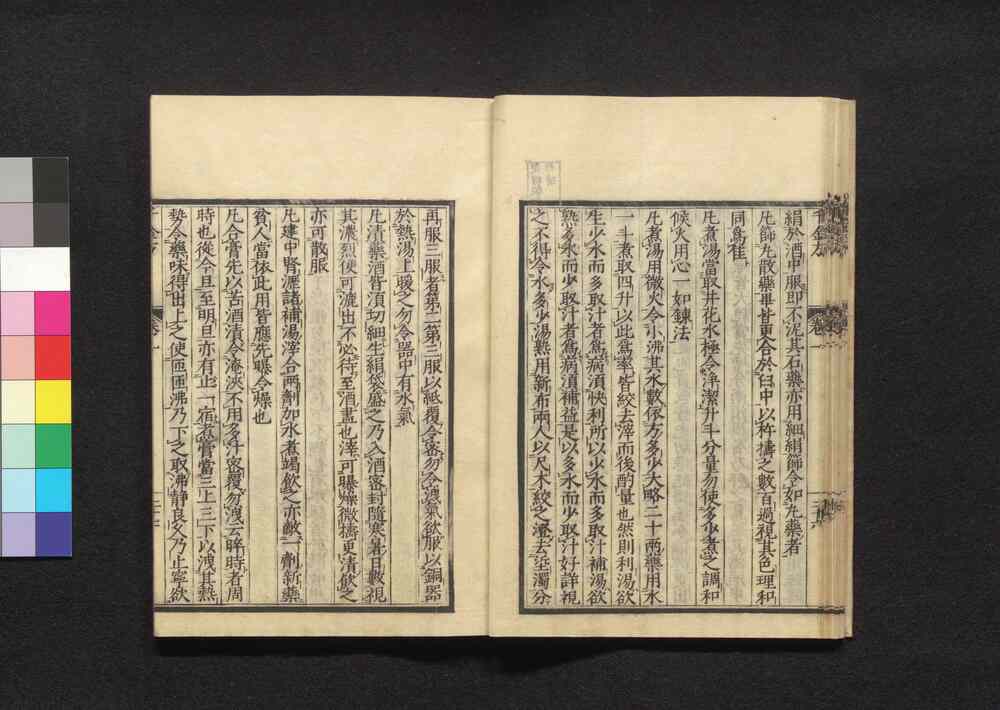 絹於酒中服即不泥其石藥亦用細絹篩令如丸藥者
凡篩丸散藥畢皆更合於臼中以杵擣之數百過視其色理和
同爲佳
凡煮湯當取井花水極令淨潔升斗分量勿使多少煮之調和
候火用心一如鍊法
凡煮湯用微火令小沸其水數依方多少大略二十兩藥用水
一斗煮取四升以此爲率皆絞去滓而後酌量也然則利湯欲
生少水而多取汁者爲病須快利所以少水而多取汁補湯欲
熟多水而少取汁者爲病須補益是以多水而少取汁好詳視
之不得令水多少湯熟用新布兩人以尺木絞之澄去垽濁分
再服三服者第二第三服以紙覆令密勿令洩氣欲服以銅器
於熱湯上暖之勿令器中有水氣
凡漬藥酒皆須切細生絹袋盛之乃入酒密封隨寒暑日數視
其濃烈便可漉出不必待至酒盡也滓可曝燥微擣更漬飲之
亦可散服
凡建中腎瀝諸補湯滓合兩劑加水煮竭飲之亦敵一劑新藥
貧人當依此用皆應先曝令燥也
凡合膏先以苦酒漬令淹浹不用多汁密覆勿洩云晬時者周
時也從今旦至明旦亦有止一宿煮膏當三上三下以洩其熱
勢令藥味得出上之使匝匝沸乃下之取沸靜良久乃止寧欲